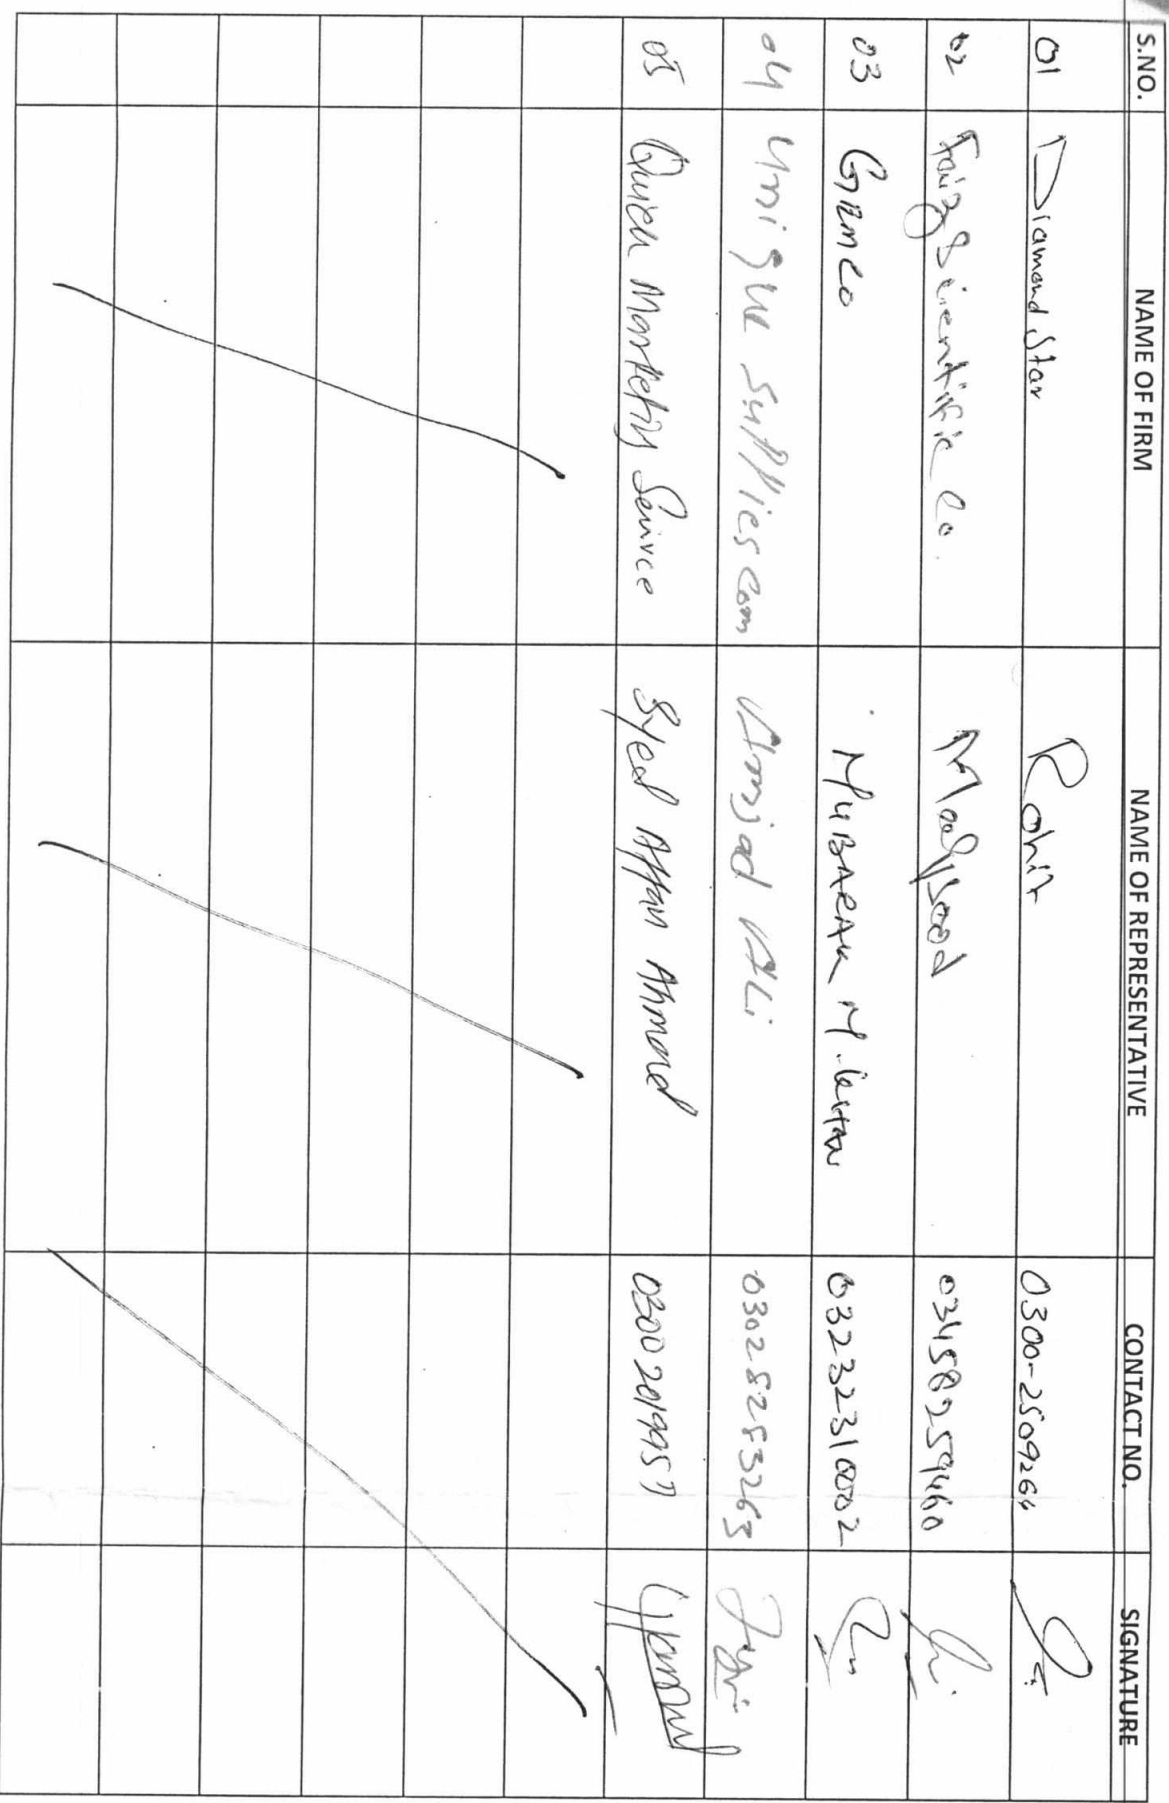 S.NO. NAME OF FIRM NAME OF REPRESENTATIVE CONTACT NO. SIGNATURE
01 Diamond Star Rohit 0300-2509264
02 Faiz Scientific Co. Maqsood 03458259460
03 GEMCO MUBARAK M. 03232310002
04 Unique Supplies com Amjad Ali 03028283263
05 Quick Marketing Seivce Syed Affan Ahmed 03002019957